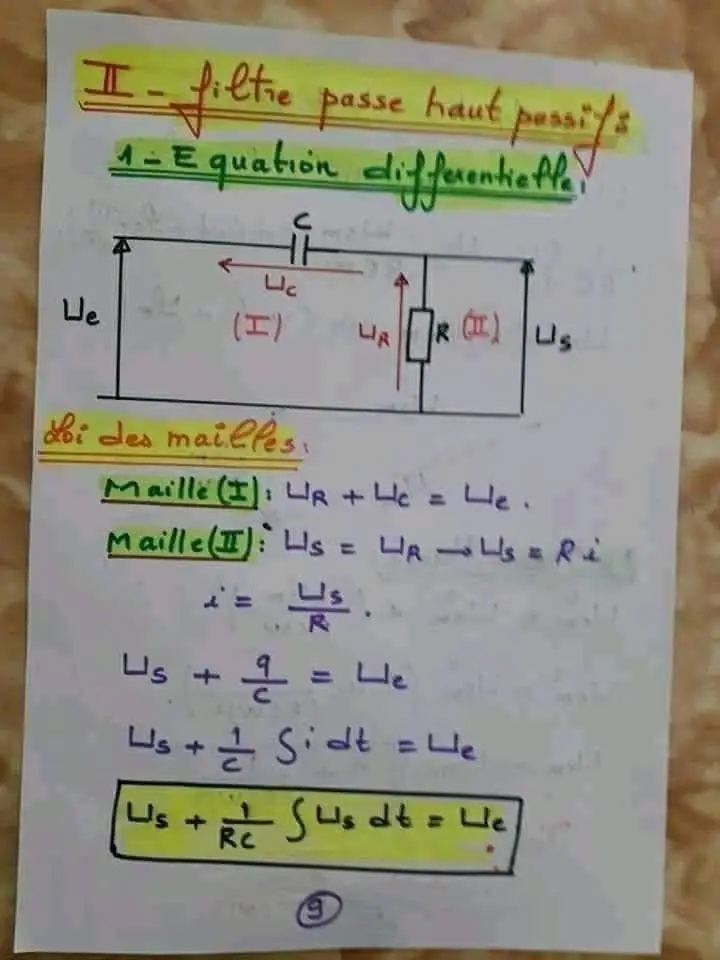 II - filtre passe haut passifs
1 - Equation differentielle:
C
Uc
Ue
(I)
UR
R
(II)
Us
Loi des mailles:
Maille (I): UR + Uc = Ue.
Maille (II): Us = UR → Us = Ri
i = Us/R.
Us + q/C = Ue
Us + 1/C ∫ i dt = Ue
Us + 1/RC ∫ Us dt = Ue
9